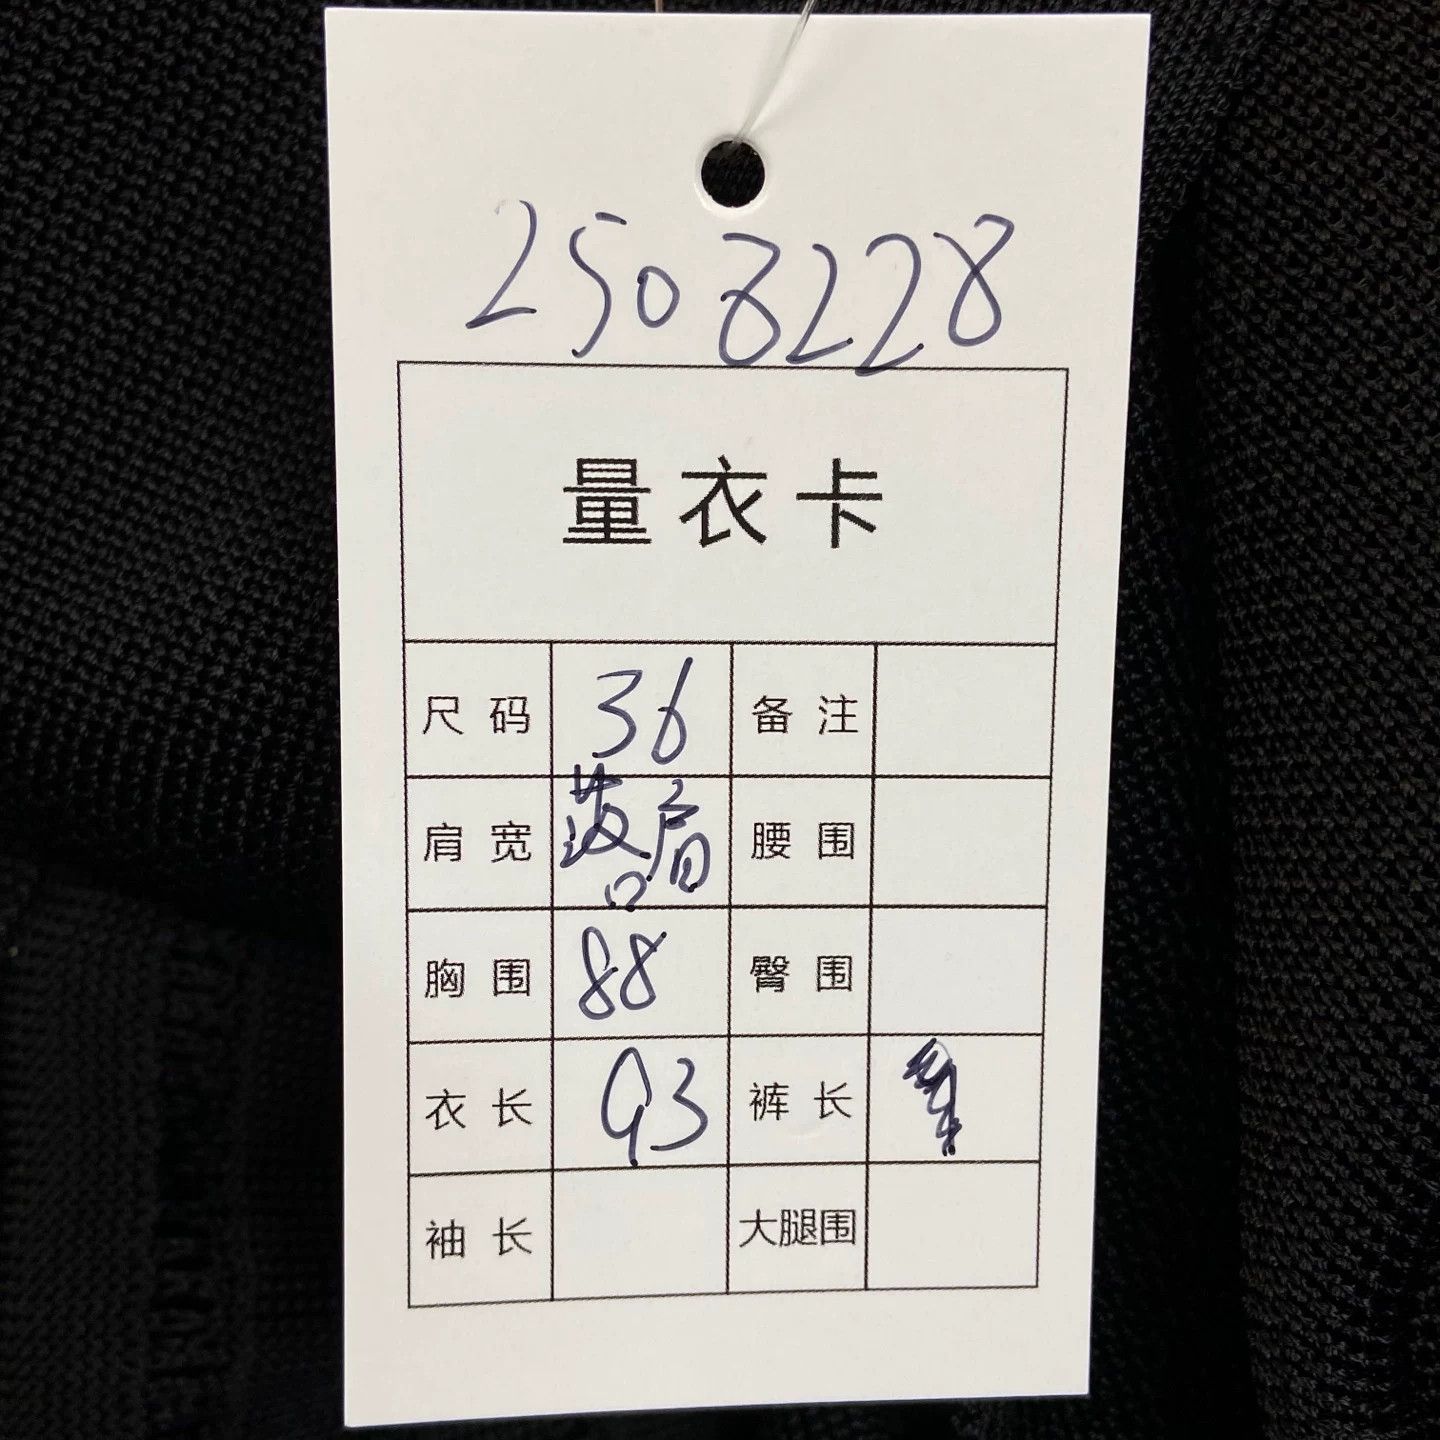 2508228
量衣卡
尺码 36 备注
肩宽 落肩 腰围
胸围 88 臀围
衣长 93 裤长
袖长 大腿围